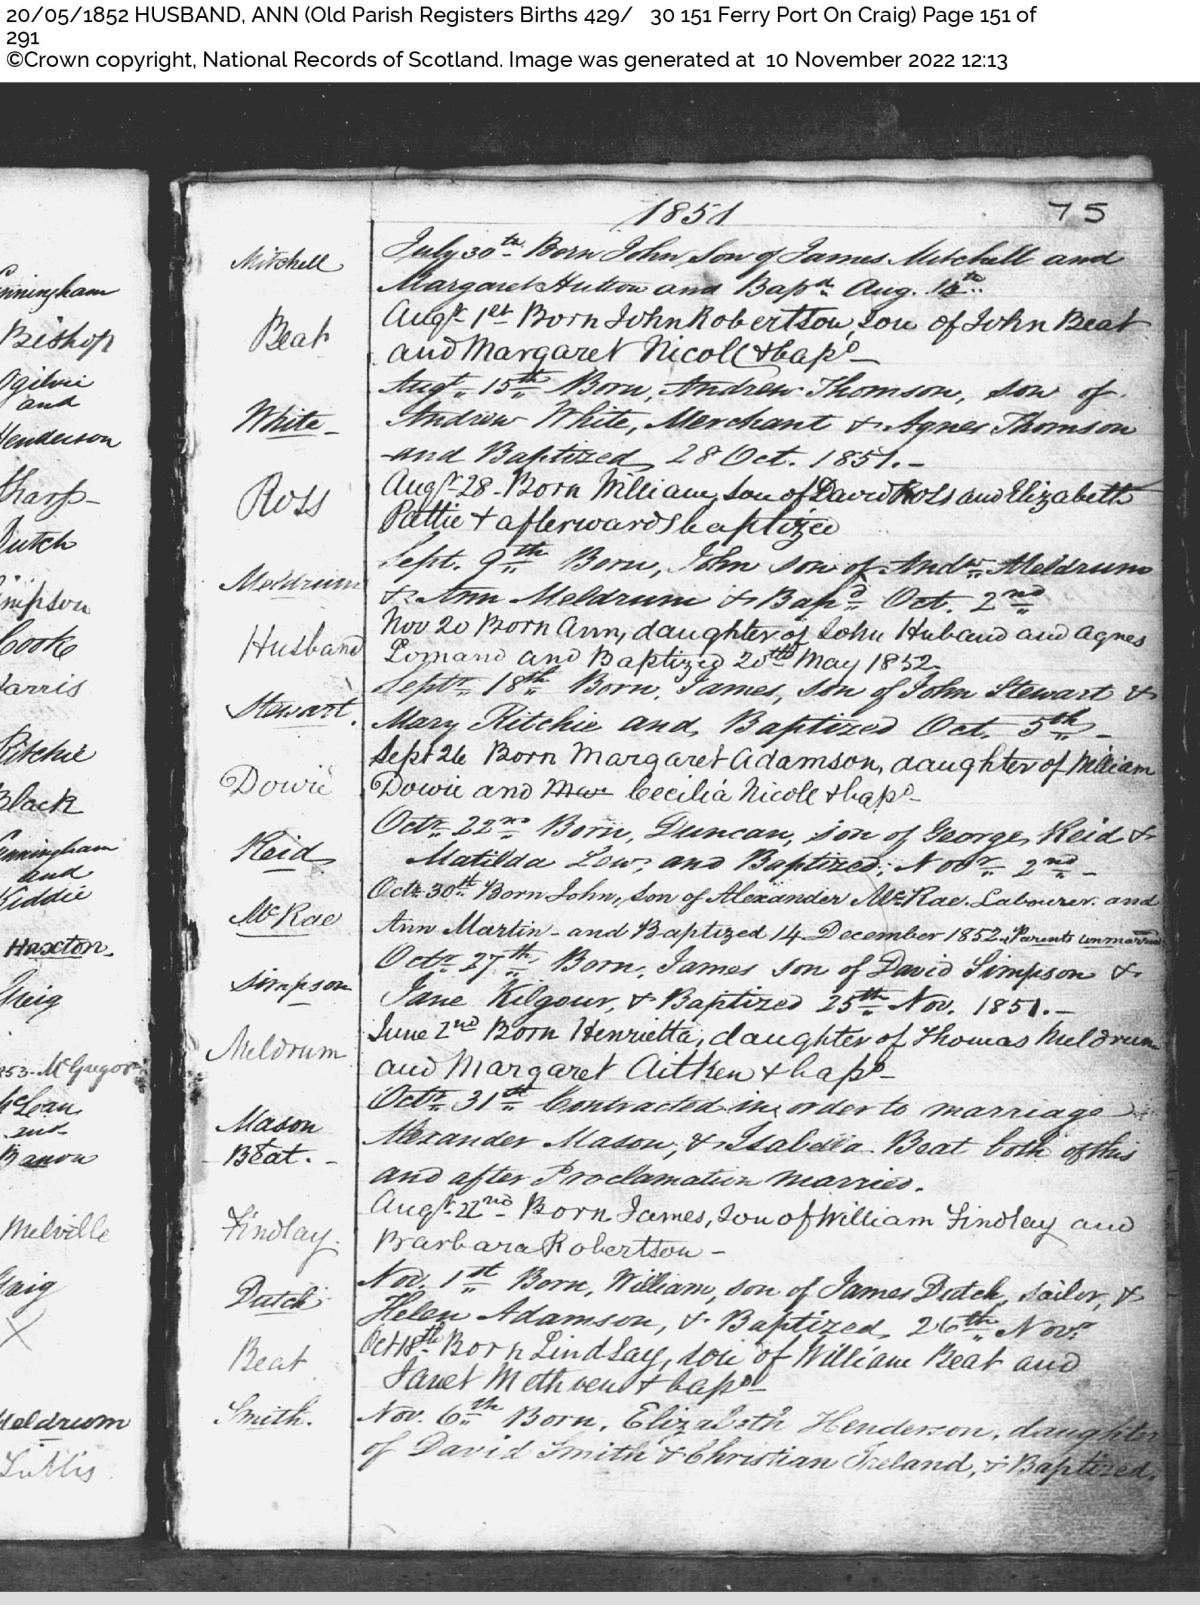 20/05/1852 HUSBAND, ANN (Old Parish Registers Births 429/ 30 151 Ferry Port On Craig) Page 151 of
291
©Crown copyright, National Records of Scotland. Image was generated at 10 November 2022 12:13
1851 75
Mitchell July 30th Born John son of James Mitchell and
Margaret Hutton and Bapd. Aug.
Beat Augt 1st Born John Robertson, son of John Beat
and Margaret Nicoll & bapd
Augt. 15th Born, Andrew Thomson, son of
White Andrew White, Merchant & Agnes Thomson
and Baptized 28 Oct. 1851.
Ross Augt 28 Born William, son of David Ross and Elizabeth
Pattie & afterwards baptized
Sept. 9th Born, John son of Andw. Meldrum
Meldrum & Ann Meldrum & Bapd Oct. 2nd
Husband Nov 20 Born Ann, daughter of John Huband and Agnes
Lomand and Baptized 20th May 1852
Septr. 18th Born, James, son of John Stewart &
Stewart. Mary Ritchie and Baptized Oct. 5th
Sept 26 Born Margaret Adamson, daughter of William
Dowie Dowie and Mar Cecilia Nicoll & bapd
Octr. 22nd Born, Duncan, son of George Reid &
Reid Matilda Low, and Baptized, Novr. 2nd
Octr 30th Born John, son of Alexander McRae, Labourer and
McRae Ann Martin - and Baptized 14 December 1852. Parents unmarried
Octr. 27th Born, James son of David Simpson &
Simpson Jane Kilgour, & Baptized 25th Nov. 1851.
June 2nd Born Henrietta, daughter of Thomas Meldrum
Meldrum and Margaret Aitken & bapd
Octr. 31st Contracted in order to marriage
Mason Alexander Mason, & Isabella Beat both of this
Beat. and after Proclamation married.
Findlay. Augt 22nd Born James, son of William Findlay and
Barbara Robertson
Nov. 1st Born, William, son of James Dutch, sailor, &
Dutch Helen Adamson, & Baptized, 26th Novr.
Oct 18th Born Lindsay, son of William Beat and
Beat Janet Methven & bapd
Smith. Nov. 6th Born, Elizabeth Henderson, daughter
of David Smith & Christian Ireland, & Baptized.
Bishop
Ogilvie
and
Henderson
Cooke
Ritchie
Black
and
Kiddie
Haxton.
McGregor
Melville
Meldrum